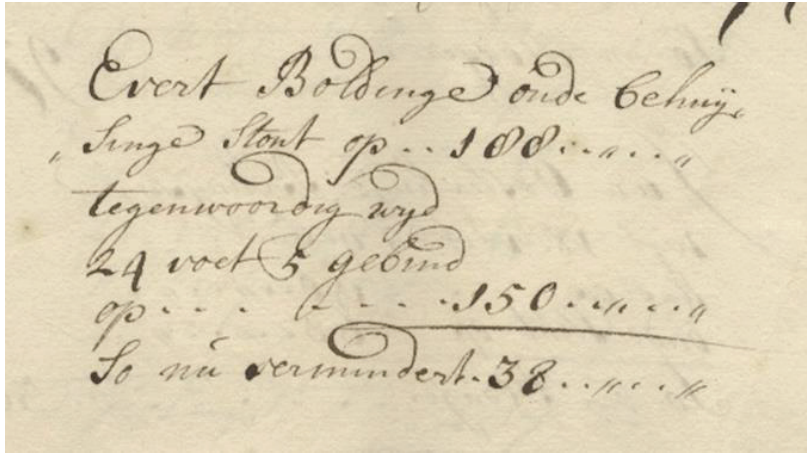 Evert Boldinge oude behuij„
„singe stont op .. 188 .. „ .. „
tegenwoordig wyd
24 voet 5 gebind
op . . . . . . . . 150 .. „ .. „
So nu vermindert . 38 .. „ .. „